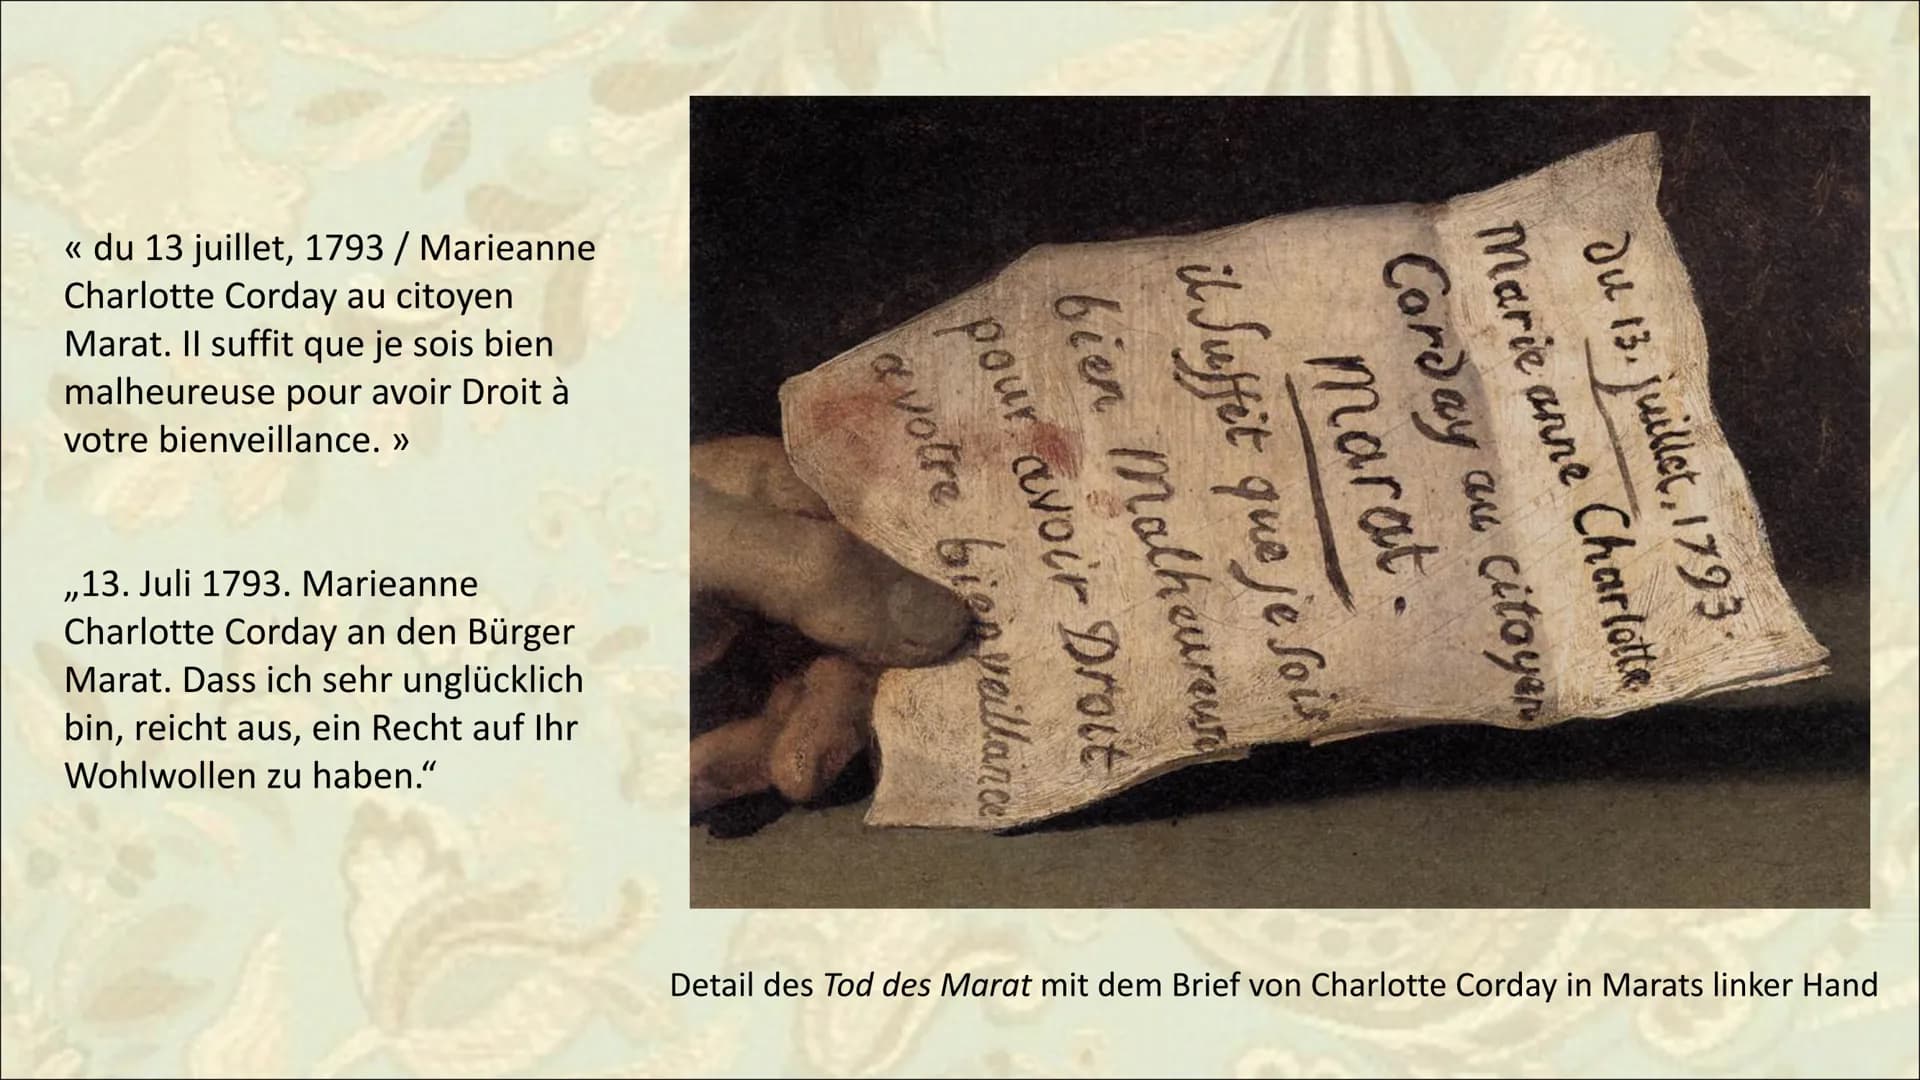 « du 13 juillet, 1793 / Marieanne
Charlotte Corday au citoyen
Marat. II suffit que je sois bien
malheureuse pour avoir Droit à
votre bienveillance. »
„13. Juli 1793. Marieanne
Charlotte Corday an den Bürger
Marat. Dass ich sehr unglücklich
bin, reicht aus, ein Recht auf Ihr
Wohlwollen zu haben.“
du 13. juillet, 1793.
Marie anne Charlotte
Corday au citoyen
Marat.
il suffit que je sois
bien Malheureuse
pour avoir Droit
a votre bienveillance
Detail des Tod des Marat mit dem Brief von Charlotte Corday in Marats linker Hand